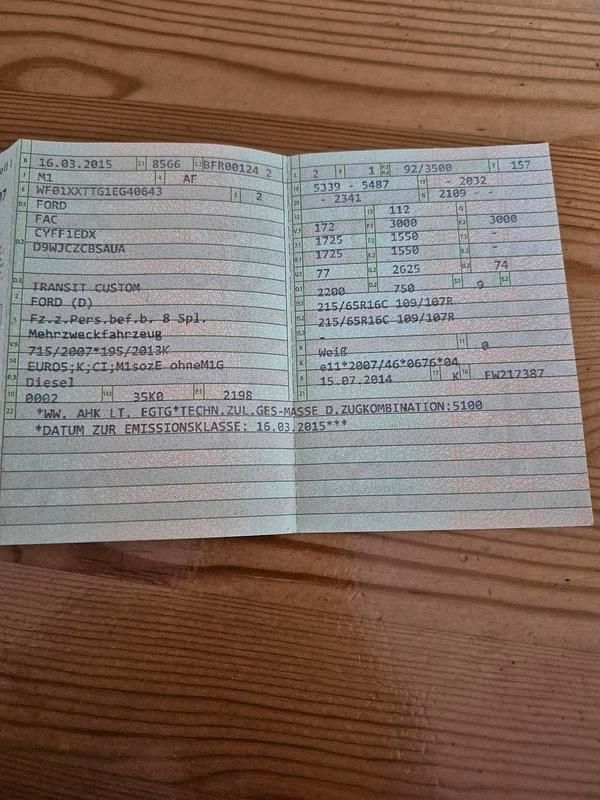 16.03.2015 8566 BFR00124 2
M1 AF
WF01XXTTG1EG40643 2
FORD
FAC
CYFF1EDX
D9WJCZCBSAUA
TRANSIT CUSTOM
FORD (D)
Fz.z.Pers.bef.b. 8 Spl.
Mehrzweckfahrzeug
715/2007*195/2013K
EURO5;K;CI;M1sozE ohneM1G
Diesel
0002 35K0 2198
2 1 92/3500 157
5339 - 5487 - 2032
- 2341 2109 - -
112
172 3000 3000
1725 1550 -
1725 1550 -
77 2625 74
2200 750 9
215/65R16C 109/107R
215/65R16C 109/107R
-
Weiß 0
e11*2007/46*0676*04
15.07.2014 K EW217387
22 *WW. AHK LT. EGTG*TECHN.ZUL.GES-MASSE D.ZUGKOMBINATION:5100
*DATUM ZUR EMISSIONSKLASSE: 16.03.2015***